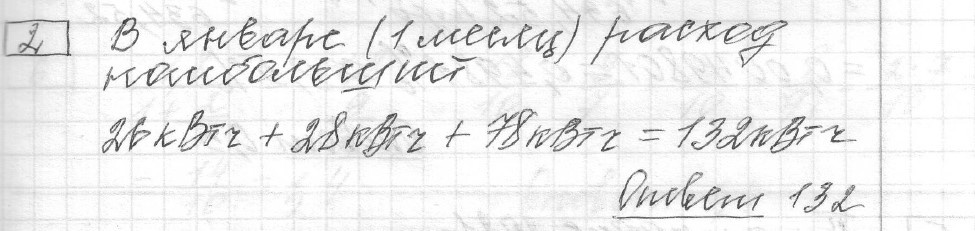 2 В январе (1 месяц) расход
наибольший
26кВтч + 28кВтч + 78кВтч = 132кВтч
Ответ 132